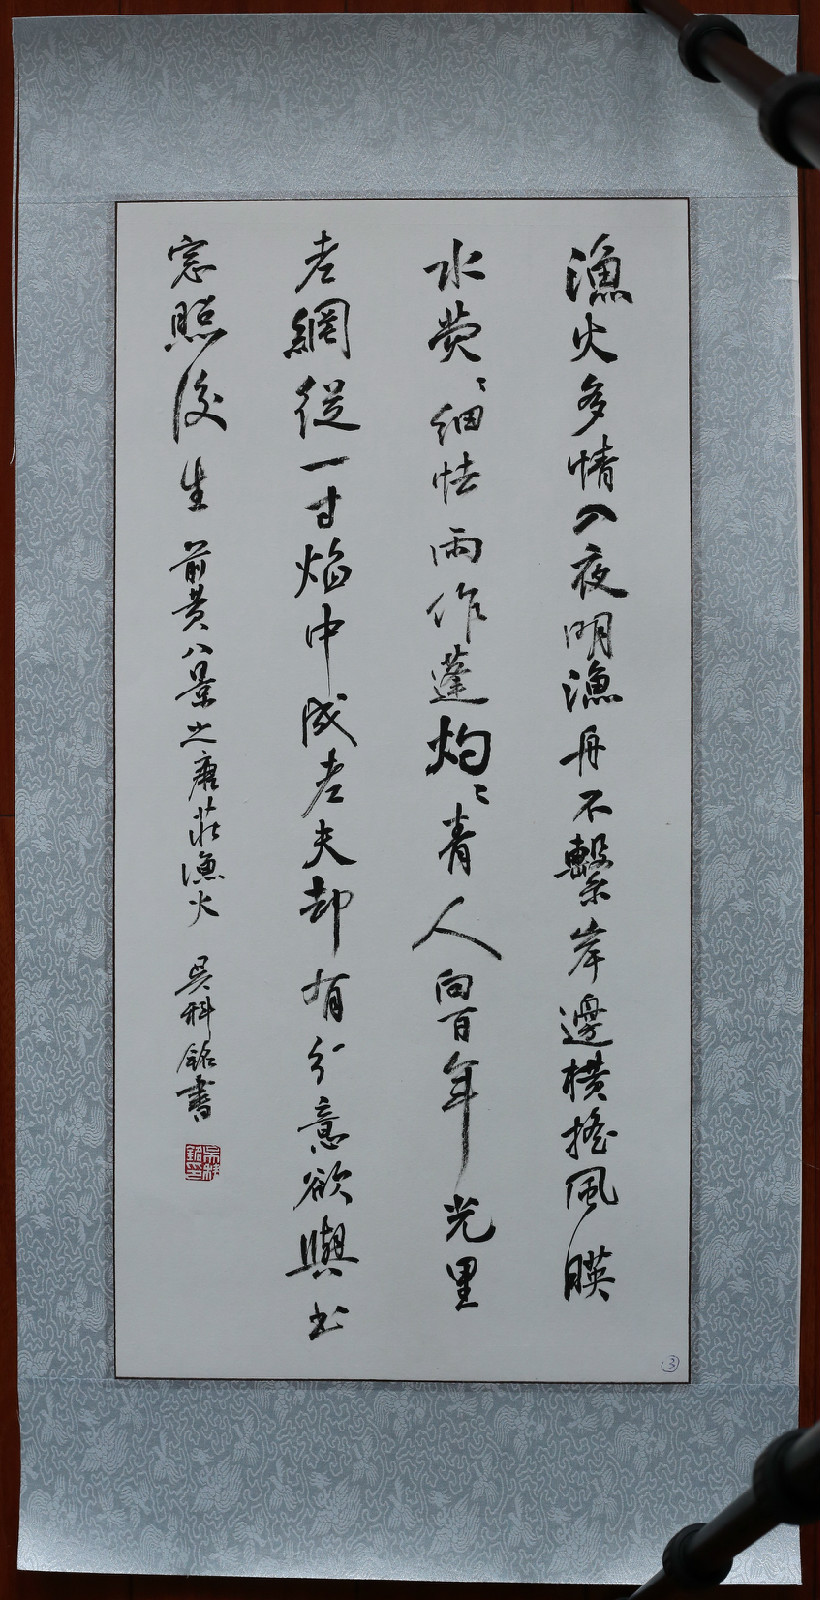 漁火多情入夜明漁舟不繫岸邊橫搖風映
水熒〻細怯雨作蓬灼〻青人向百年光里
老網從一寸焰中成老夫却有分意欲與書
窓照後生 前黄八景之唐莊漁火 吳科銘書
③